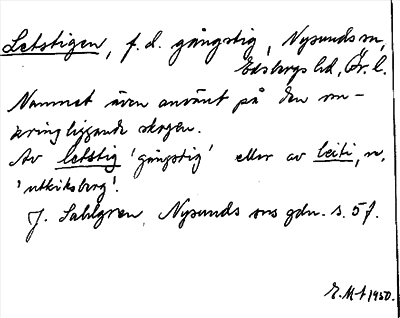 Letstigen, f.d. gångstig, Nysunds sn,
Edsbergs hd, Ör. l.
Namnet även använt på den om-
kring liggande skogen.
Av letstig 'gångstig' eller av leiti, n,
'utkiksberg'.
J. Sahlgren, Nysunds sns gdn. s. 5 f.
E. M-t 1950.